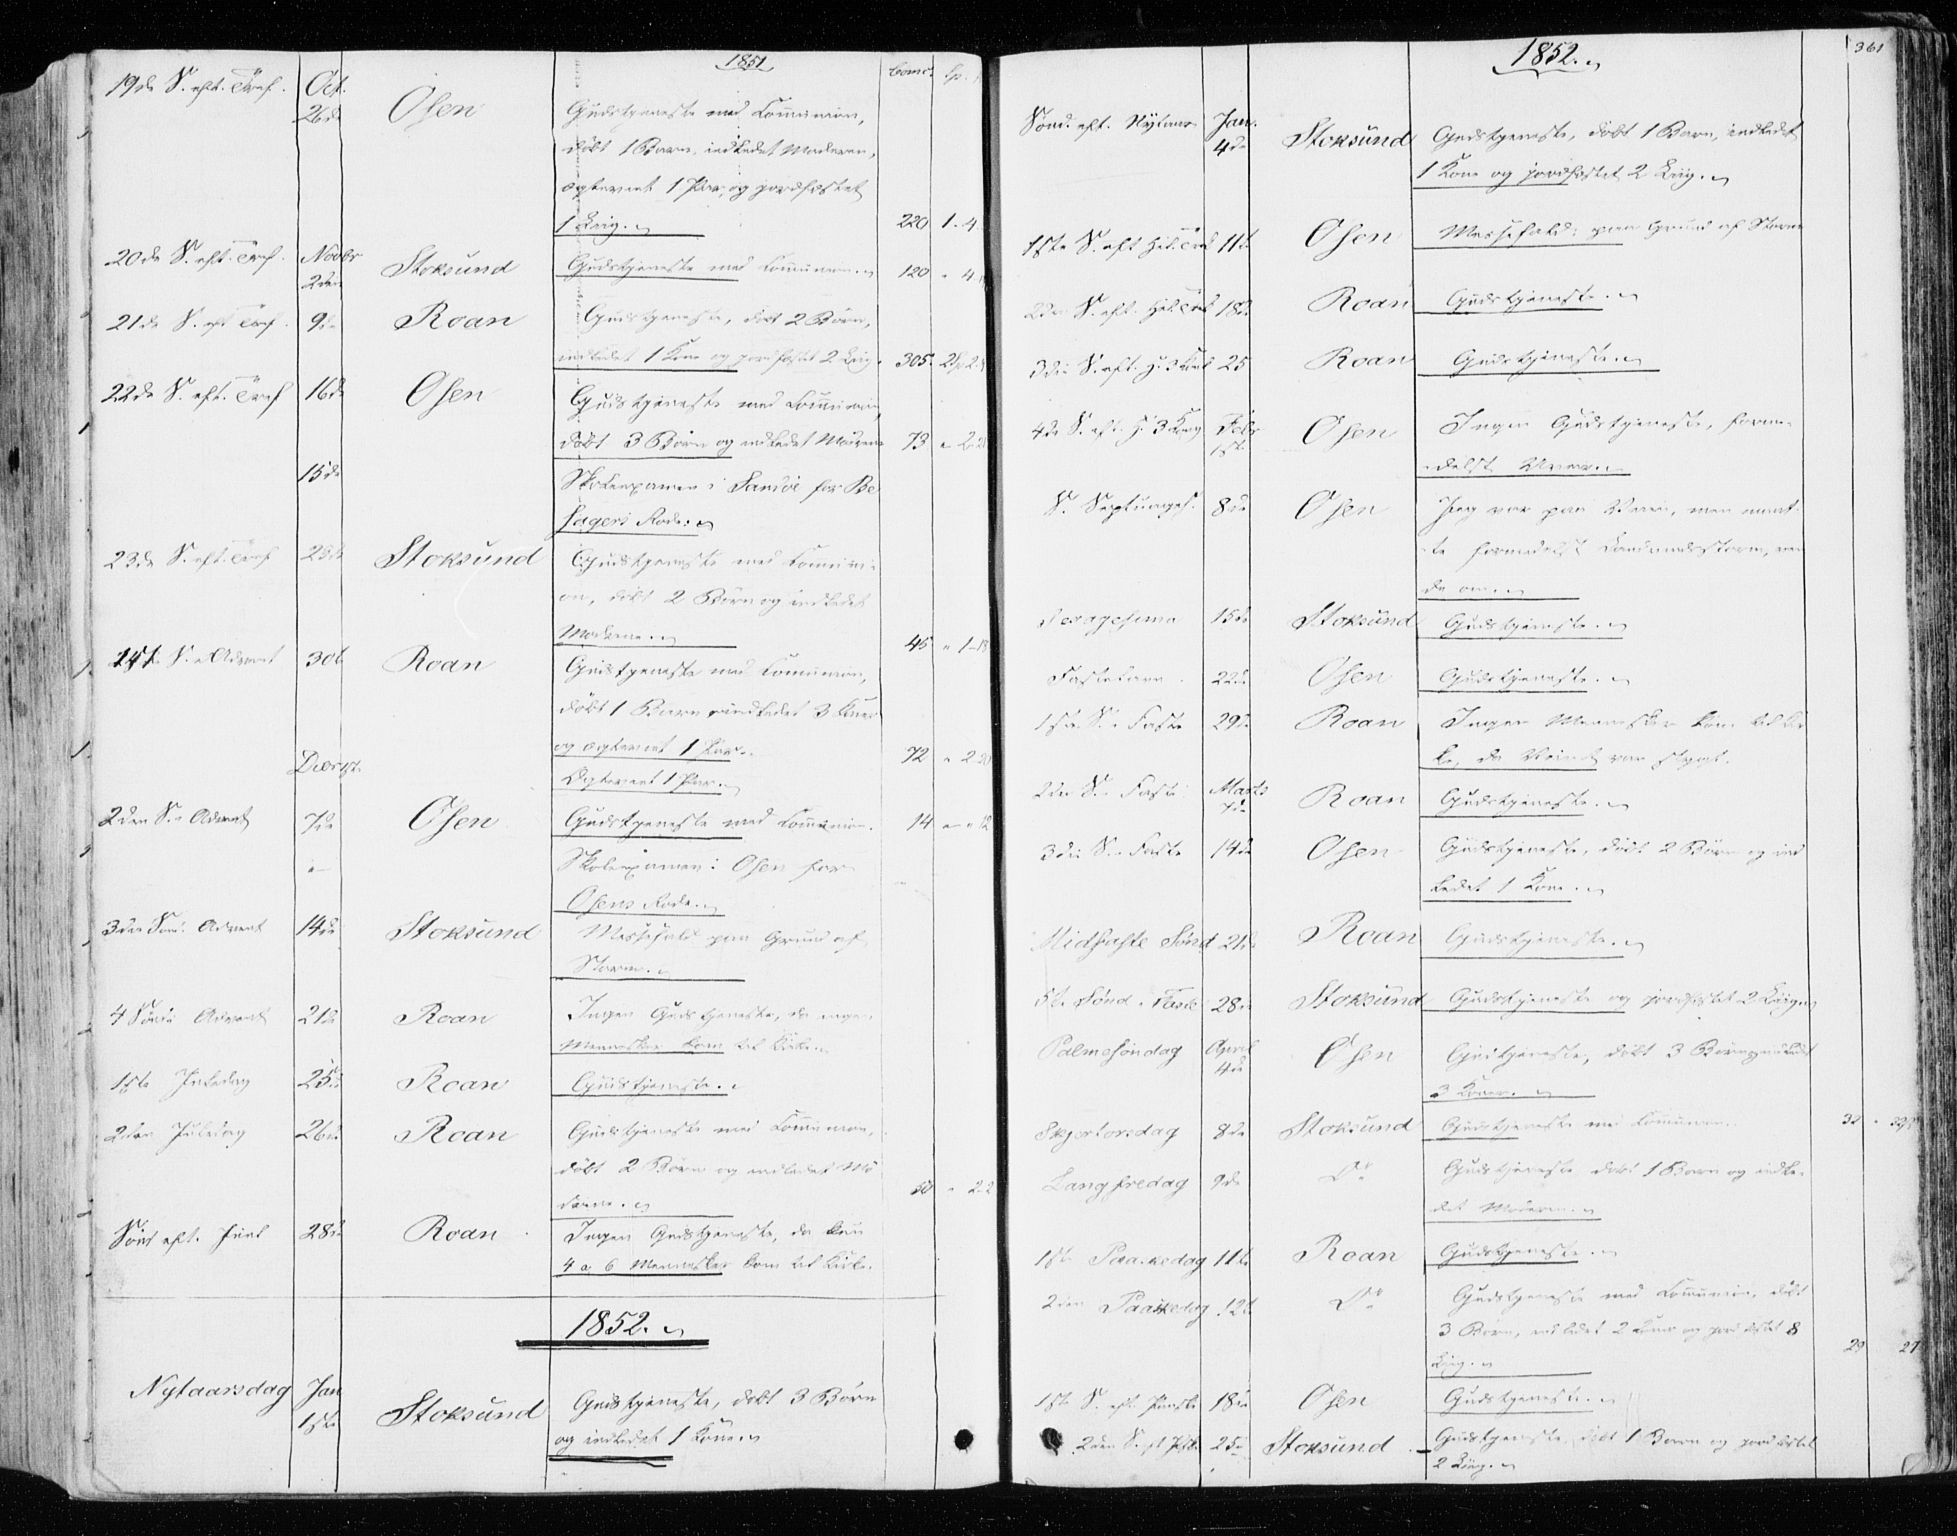 1851
Comc. Sp.
19de S. eft. Tref. Oct. 26de Osen Gudstjeneste med Communion,
döbt 1 Barn, indledet Moderen,
ægteviet 1 Par, og jordfæstet
1 Liig. 220 1 - 4
20de S. eft. Tref. Novbr 2den Stoksund Gudstjeneste med Communion. 120 " 4
21de S. eft. Tref. 9de Roan Gudstjeneste, döbt 2 Börn,
indledet 1 Kone og jordfæstet 2 Liig. 305.
22de S. eft. Tref. 16de Osen Gudstjeneste med Communion,
döbt 3 Börn og indledet Mödrene 73
15de Skoleexamen i Sandöe for
Rode.
23de S. eft. Tref. 23de Stoksund Gudstjeneste med Communi-
on, döbt 2 Börn og indledet
Mödrene. 45 " 1-18
1ste S. i Advent 30te Roan Gudstjeneste med Communion,
döbt 1 Barn, indledet 3 Koner
og ægteviet 1 Par. 72 " 2-20
Decbr 1ste Ægteviet 1 Par.
2den S. i Advent 7de Osen Gudstjeneste med Communion. 14 " - " 12
Skoleexamen i Osen for
Osens Rode.
3die Sönd. Advent 14de Stoksund Messefald paa Grund af
Storm.
4 Sönd. Advent 21de Roan Ingen Gudstjeneste, da ingen
Mennesker kom til Kirke.
1ste Juledag 25de Roan Gudstjeneste.
2den Juledag 26de Roan Gudstjeneste med Communion,
döbt 2 Börn og indledet Mö
drene. 50 " 2-2
Sönd eft. Juul 28de Roan Ingen Gudstjeneste, da kun
4 a 6 Mennesker kom til Kirke.
1852.
Nytaarsdag Jan 1ste Stoksund Gudstjeneste, döbt 3 Börn
og indledet 1 Kone.
1852.
361
Sönd. eft. Nytaar Jan. 4de Stoksund Gudstjeneste, döbt 1 Barn, indledet
1 Kone og jordfæstet 2 Liig.
1ste S. eft. Hel. Tre 11te Osen Messefald: paa Grund af Storm
2den S. eft. Hel. Tre 18de Roan Gudstjeneste.
3die S. eft. H. 3 Kong 25 Roan Gudstjeneste.
4de S. eft. H. 3 Kong Febr 1ste Osen Ingen Gudstjeneste, forme-
delst Uveir.
S. Septuages. 8de Osen Jeg var paa Veien, men maat-
te formedelst Landvindsstorm, ven
de om.
Sexagesima 15de Stoksund Gudstjeneste.
Fastelavn 22de Osen Gudstjeneste.
1ste S. i Faste 29de Roan Ingen Mennesker kom til Kir
ke, da Veiret var slet.
2den S. i Faste Marts 7de Roan Gudstjeneste.
3die S. i Faste 14de Osen Gudstjeneste, döbt 2 Börn og ind
ledet 1 Kone.
Midfaste Sönd 21de Roan Gudstjeneste.
5te Sönd. i Faste 28de Stoksund Gudstjeneste og jordfæstet 2 Liig.
Palmesöndag April 4de Osen Gudstjeneste, döbt 3 Börn, indledet
3 Koner.
Skjertorsdag 8de Stoksund Gudstjeneste med Communion. 32
Langfredag 9de Do Gudstjeneste döbt 1 Barn og indle-
det Moderen.
1ste Paaskedag 11te Roan Gudstjeneste.
2den Paaskedag 12te Do Gudstjeneste med Communion, döbt
3 Börn, indledet 2 Koner og jordfæstet 8
Liig. 29 27
1ste S. eft. Paaske 18de Osen Gudstjeneste.
2den S. eft. Paaske 25de Stoksund Gudstjeneste, döbt 1 Barn og jordfæstet
2 Liig.